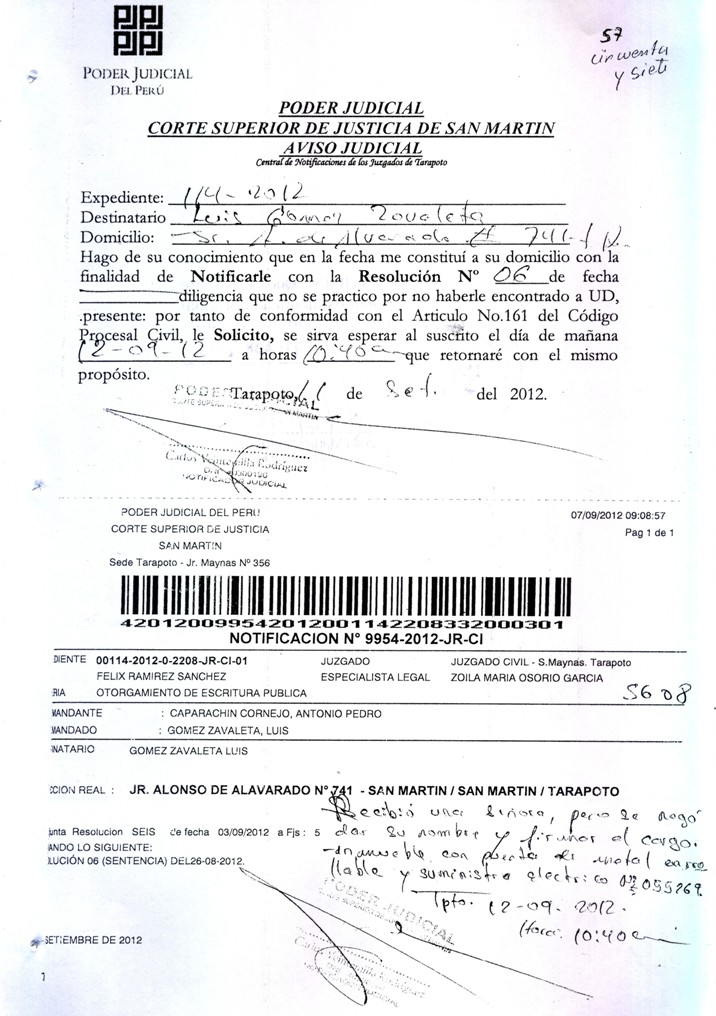 57
cincuenta
y siete
PODER JUDICIAL
DEL PERÚ
PODER JUDICIAL
CORTE SUPERIOR DE JUSTICIA DE SAN MARTIN
AVISO JUDICIAL
Central de Notificaciones de los Juzgados de Tarapoto
Expediente: 114-2012
Destinatario Luis Gomez Zavaleta
Domicilio: Jr. A. de Alvarado # 741-
Hago de su conocimiento que en la fecha me constituí a su domicilio con la
finalidad de Notificarle con la Resolución Nº 06 de fecha
diligencia que no se practico por no haberle encontrado a UD,
.presente: por tanto de conformidad con el Articulo No.161 del Código
Procesal Civil, le Solicito, se sirva esperar al suscrito el día de mañana
12-09-12 a horas 10:40a que retornaré con el mismo
propósito.
Tarapoto, 11 de Set. del 2012.
Carlos Rodríguez
NOTIFICADOR JUDICIAL
PODER JUDICIAL DEL PERU
CORTE SUPERIOR DE JUSTICIA
SAN MARTIN
Sede Tarapoto - Jr. Maynas Nº 356
07/09/2012 09:08:57
Pag 1 de 1
420120099542012001142208332000301
NOTIFICACION N° 9954-2012-JR-CI
DIENTE 00114-2012-0-2208-JR-CI-01 JUZGADO JUZGADO CIVIL - S.Maynas. Tarapoto
FELIX RAMIREZ SANCHEZ ESPECIALISTA LEGAL ZOILA MARIA OSORIO GARCIA
RIA OTORGAMIENTO DE ESCRITURA PUBLICA 5608
MANDANTE : CAPARACHIN CORNEJO, ANTONIO PEDRO
MANDADO : GOMEZ ZAVALETA, LUIS
NATARIO GOMEZ ZAVALETA LUIS
CCION REAL : JR. ALONSO DE ALAVARADO N° 741 - SAN MARTIN / SAN MARTIN / TARAPOTO
Recibió una señora, pero se negó
unta Resolucion SEIS de fecha 03/09/2012 a Fjs : 5 dar su nombre y firmar el cargo.
ANDO LO SIGUIENTE: -Inmueble con puerta de metal enrro
LUCIÓN 06 (SENTENCIA) DEL26-08-2012. llable y suministro electrico Nº 055269
PODER JUDICIAL
Tpto. 12-09-2012.
Hora: 10:40a
SETIEMBRE DE 2012
1